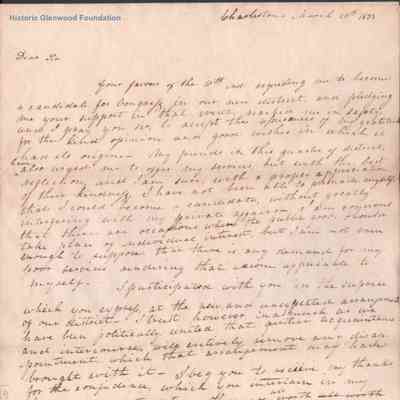 Historic Glenwood Foundation
Charleston March 20th 1833
Dear Sir
Your favour of the 11th inst requesting me to become
a candidate for Congress in our new district, and pledging
me your support in that event, reached me in safety
and I pray you sir, to accept the assurances of my gratitude
for the kind opinion and good wishes in which it
has its origin. My friends in this quarter of district,
have also urged me to offer my services, but with the best
reflection, and I am sure with a proper appreciation
of their kindness, I have not been able to persuade myself,
that I could become a candidate, without greatly
interfering with my private affairs. I am conscious
that there are occasions when the public good should
take place of individual interest, but I am not vain
enough to suppose that there is any demand for my
poor services rendering that axiom applicable to
myself.
I participated with you in the surprise
which you express, at the new and unexpected arrangement
of our district. I trust however inasmuch as we
have been politically united that further acquaintance
and intercourse, will entirely remove any disap-
pointment which that arrangement may have
brought with it – I beg you to receive my thanks
for the confidence, which you entertain in my
worth